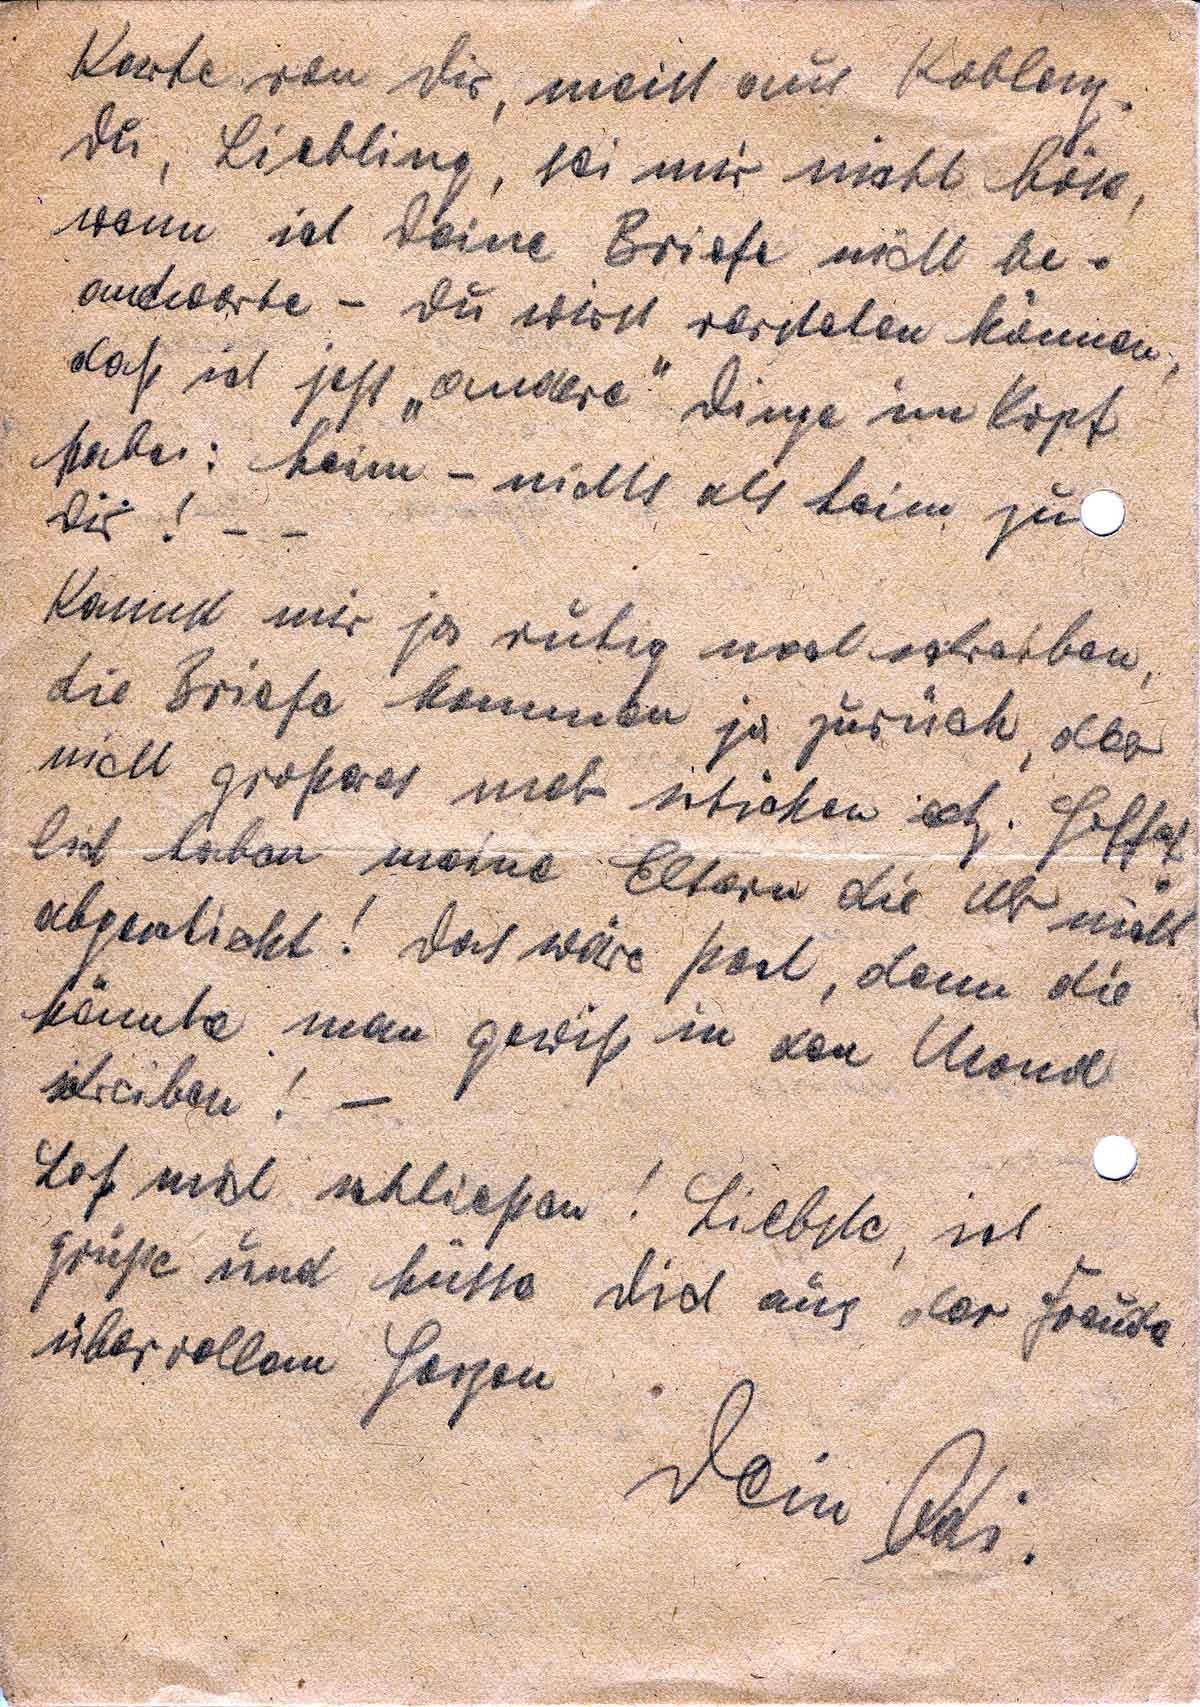 Karte von Dir, meist aus Koblenz.
Du, Liebling, sei mir nicht böse,
wenn ich Deine Briefe nicht be-
antworte – Du wirst verstehen können,
daß ich jetzt „andere“ Dinge im Kopf
habe: heim – nichts als heim zu
Dir! – –
Kannst mir ja ruhig noch schreiben,
die Briefe kommen ja zurück, aber
nicht größeres mehr schicken etz. Hoffent
lich haben meine Eltern die Uhr nicht
abgeschickt! Das wäre Pech, denn die
könnte man gewiß in den Mond
schreiben! –
Laß mich schließen! Liebste, ich
grüße und küsse Dich aus der Freude
übervollem Herzen
Dein